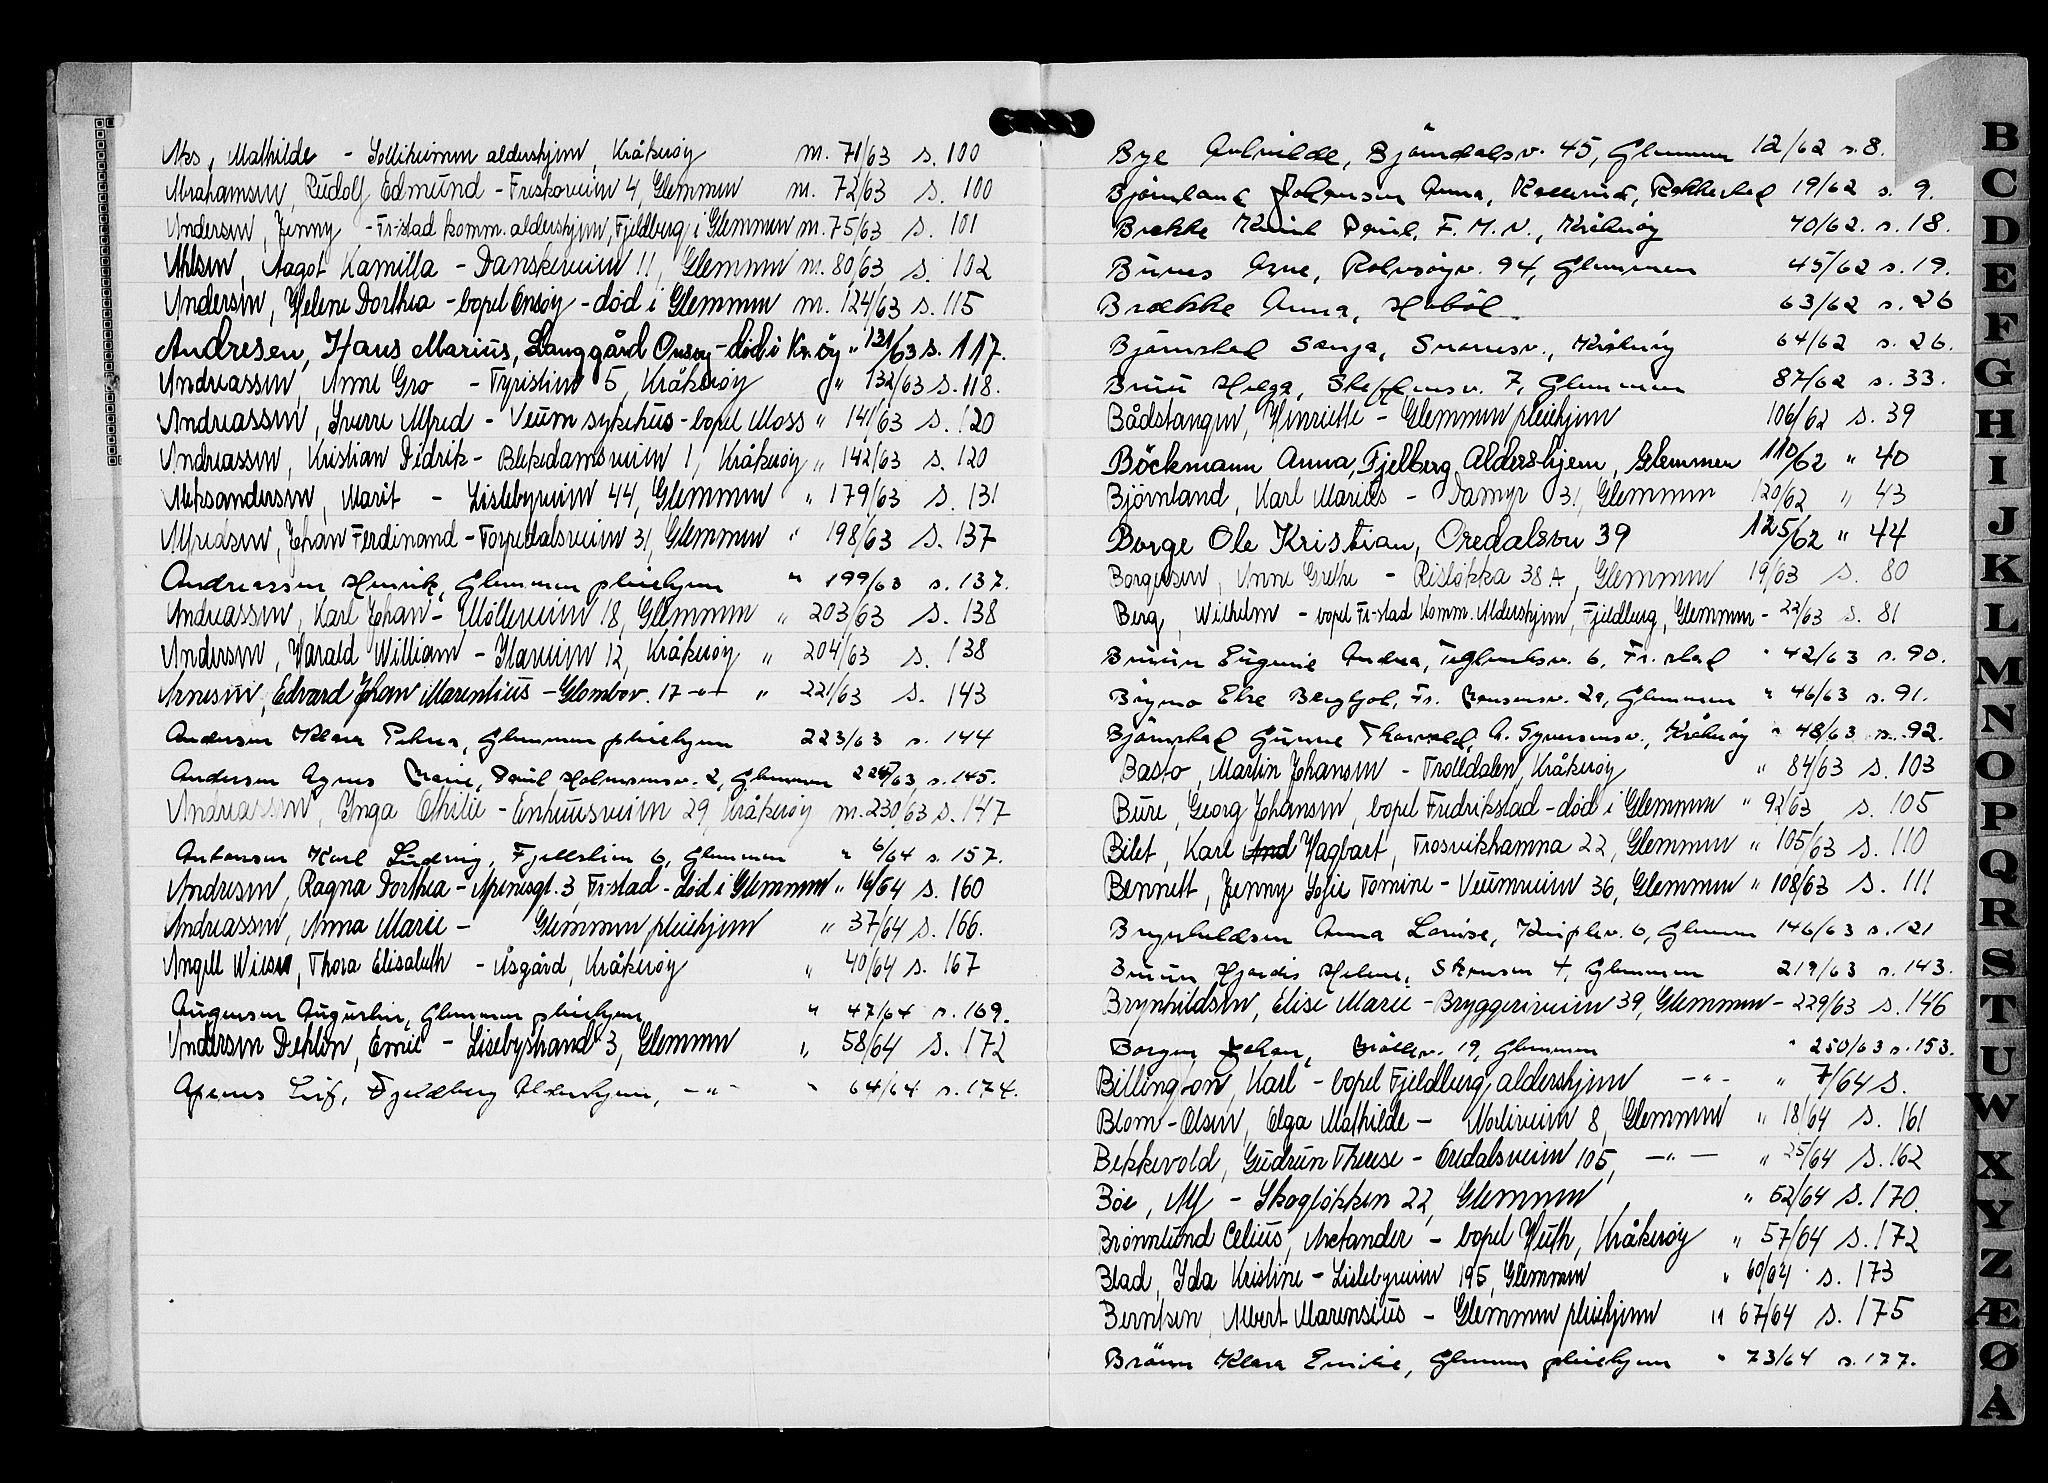 Aks, Mathilde - Solliheimen aldershjem, Kråkerøy m. 71/63 s. 100
Abrahamsen, Rudolf Edmund - Friskoveien 4, Glemmen m. 72/63 s. 100
Andersen, Jenny - Fr-stad komm. aldershjem, Fjeldberg i Glemmen m. 75/63 s. 101
Ahlsen, Aagot Kamilla - Danskeveien 11, Glemmen m. 80/63 s. 102
Andersen, Helene Dorthea - bopel Onsøy - død i Glemmen m. 124/63 s. 115
Andresen, Hans Marius, Langgård Onsøy - død i Kr.øy " 131/63 s. 117.
Andreassen, Anne Gro - Tyristien 5, Kråkerøy " 132/63 s. 118.
Andreassen, Sverre Alfred - Veum sykehus - bopel Moss " 141/63 s. 120
Andreassen, Kristian Didrik - Blekedamsveien 1, Kråkerøy " 142/63 s. 120
Aleksandersen, Marit - Lislebyveien 44, Glemmen " 179/63 s. 131
Alfredsen, Johan Ferdinand - Torpedalsveien 31, Glemmen " 198/63 s. 137
Andreassen Henrik, Glemmen pleiehjem " 199/63 s. 137.
Andreassen, Karl Johan - Mølleveien 18, Glemmen " 203/63 s. 138
Andersen, Harald William - Haveien 12, Kråkerøy " 204/63 s. 138
Arnesen, Edvard Johan Marentius - Glombov. 17 -"- " 221/63 s. 143
Andersen Klara Petrea, Glemmen pleiehjem 223/63 s. 144
Andersen Agnes Marie, Paul Holmsensv. 2, Glemmen /63 s. 145.
Andreassen, Inga Othilie - Enhuusveien 29, Kråkerøy m. 230/63 s. 147
Antonsen Karl Ludvig, Fjellstien 6, Glemmen " 6/64 s. 157.
Andresen, Ragna Dorthea - Apenesgt. 3 Fr-stad - død i Glemmen " 16/64 s. 160
Andreassen, Anna Marie - Glemmen pleiehjem " 37/64 s. 166.
Angell Wiesn, Thora Elisabeth - Åsgård, Kråkerøy " 40/64 s. 167
Augensen Augustin, Glemmen pleiehjem " 47/64 s. 169.
Andersen Dehlen, Emil - Lisebystrand 3, Glemmen " 58/64 s. 172
Apenes Leif, Fjeldberg Aldershjem, -"- " 64/64 s. 174.
Bye Gulvilde, Bjørndalsv. 45, Glemmen 12/62 s. 8.
Bjørnland Johansen Anna, Rakkestad 19/62 s. 9.
Brekke Paul, F.M.V., Kråkerøy 40/62. s. 18.
Bunes Arne, Rolvsøyv. 94, Glemmen 45/62 s. 19.
Brække Anna, Hobøl. 63/62 s. 26
Bjørnstad Sonja, Kråkerøy 64/62 s. 26.
Bruu Helga, Steffensv. 7, Glemmen 87/62 s. 33.
Bådstangen, Henriette - Glemmen pleiehjem 106/62 s. 39
Böckmann Anna, Fjelberg Aldershjem, Glemmen 110/62 " 40
Bjørnland, Karl Marius - Damyr 31, Glemmen 120/62 " 43
Borge Ole Kristian, Oredalsvn 39 125/62 " 44
Borgersen, Anne Grethe - Risløkka 38 A, Glemmen 19/63 s. 80
Berg, Wilhelm - bopel Fr-stad Komm. Aldershjem, Fjeldberg, Glemmen - 22/63 s. 81
Bruun Eugenie Andrea, Teglverksv. 6, Fr.stad " 42/63 s. 90.
Bøymo Else Bergljot, Fr. Nansensv. 2a, Glemmen " 46/63 s. 91.
Bjørnstad Gunne Thorvald, A. Syversensv., Kråkerøy " 48/63 s. 92.
Bastø, Martin Johansen - Trolldalen, Kråkerøy " 84/63 s. 103
Bure, Georg Johansen, bopel Fredrikstad - død i Glemmen " 92/63 s. 105
Bilet, Karl And Hagbart, Trosvikhamna 22, Glemmen " 105/63 s. 110
Bennett, Jenny Sofie Tomine - Veumveien 36, Glemmen " 108/63 s. 111
Brynhildsen Anna Lovise, Kniplev. 6, Glemmen 146/63 s. 121
Bruun Hjørdis Helene, Stensen 4, Glemmen 219/63 s. 143.
Brynhildsen, Elise Marie - Bryggeriveien 39, Glemmen - 229/63 s. 146
Borgen Johan, Møllev. 19, Glemmen " 250/63 s. 153.
Billington, Karl - bopel Fjeldberg aldershjem -"- " 7/64 s.
Blom-Olsen, Olga Mathilde - Nortiveien 8, Glemmen " 18/64 s. 161
Bekkevold, Gudrun Therese - Oredalsveien 105, -"- " 25/64 s. 162
Bøe, Alf - Skogløkken 22, Glemmen " 52/64 s. 170.
Brønnlund Celius, Aletander - bopel Huth, Kråkerøy " 57/64 s. 172
Blad, Ida Kristine - Lislebyveien 195, Glemmen " 60/64 s. 173
Berntsen, Albert Marensius - Glemmen pleiehjem " 67/64 s. 175
Braun Klara Emilie, Glemmen pleiehjem " 73/64 s. 177.
B
C
D
E
F
G
H
I
J
K
L
M
N
O
P
Q
R
S
T
U
W
X
Y
Z
Æ
Ø
Å